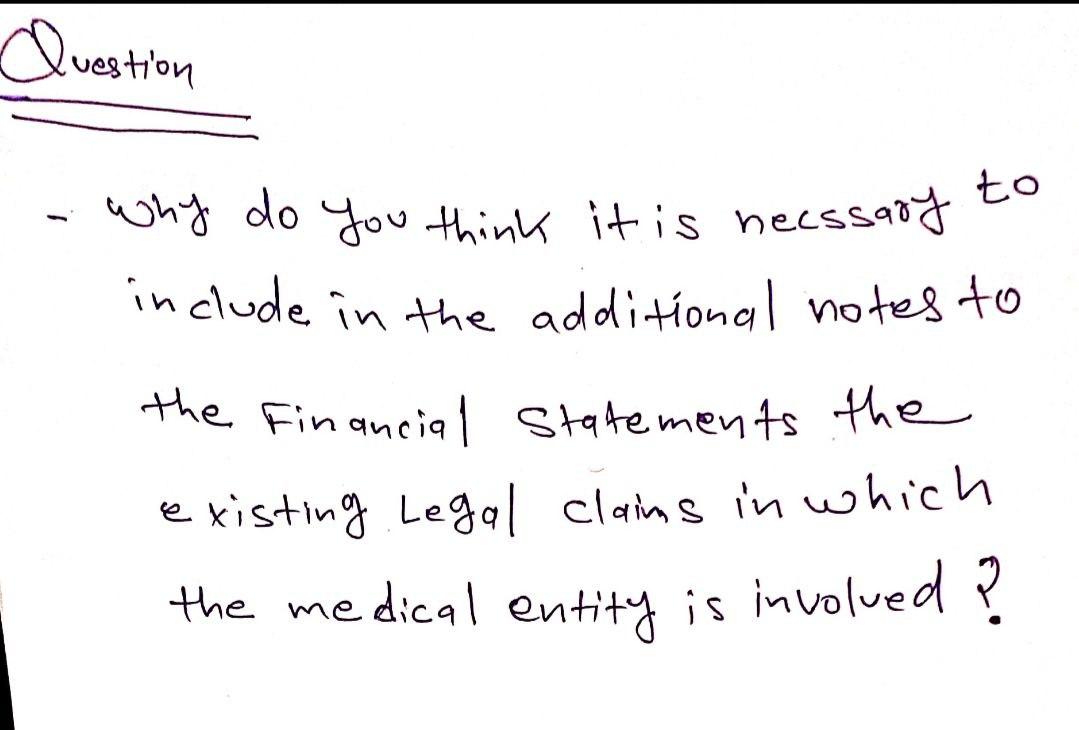 Question
- Why do you think it is necssary to
include in the additional notes to
the Financial Statements the
existing Legal claims in which
the medical entity is involved ?